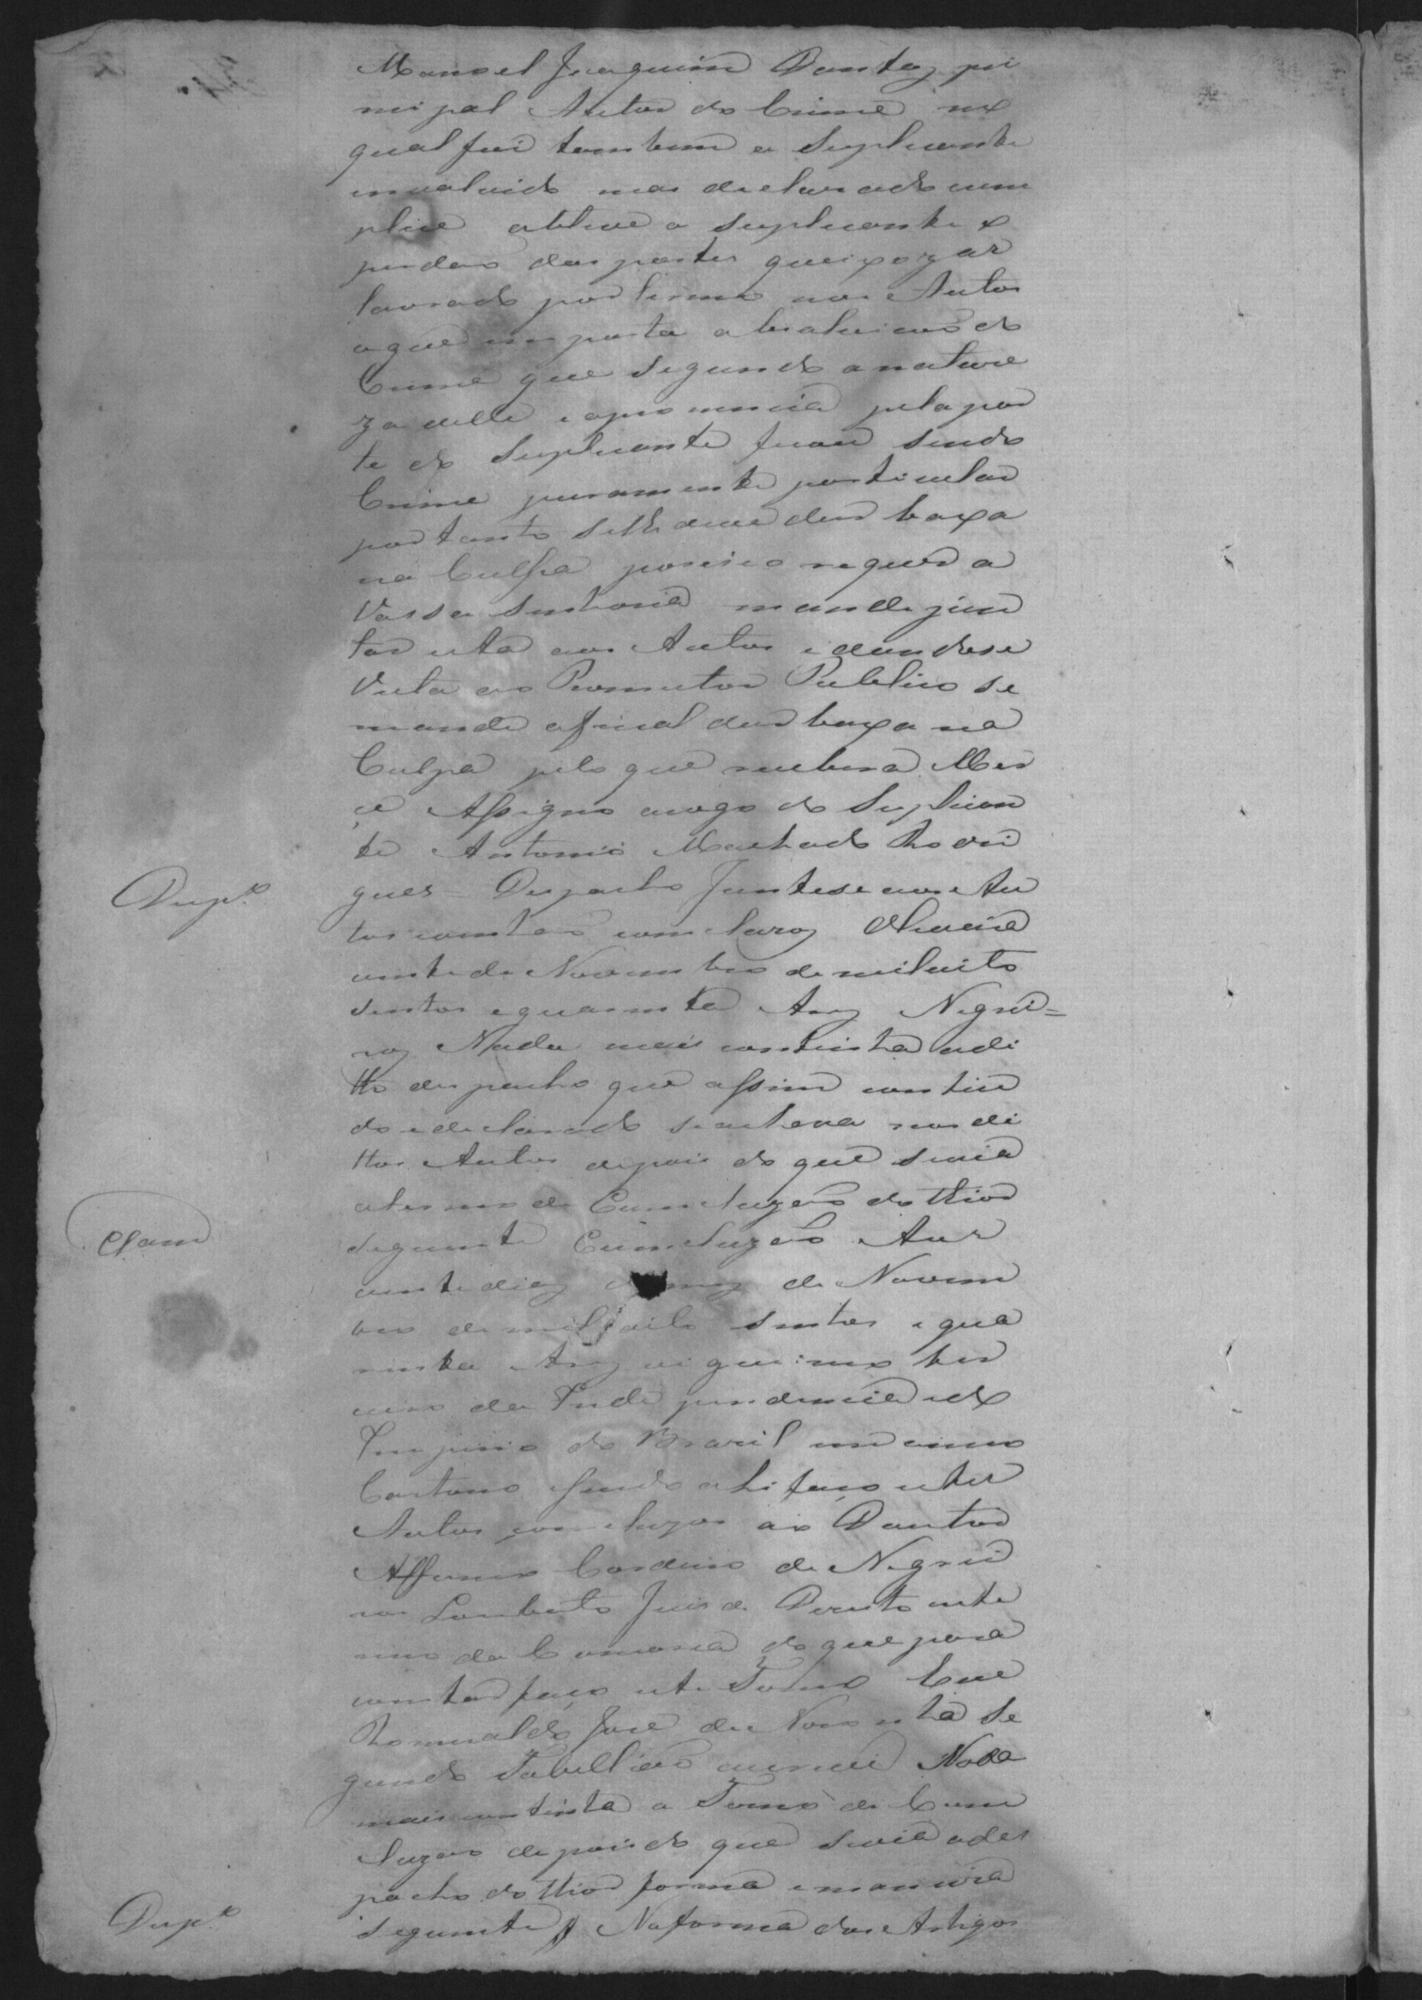 Manoel Joaquim Dantas, prin
sipal Autor do Crime no
qual foi tambem o Suplicante
invoulvido mas declarado cum
plice obteve o Suplicante o
perdaõ das partes queixozas
lavrado por termo nos Autos
o que importa a
Crime que segundo a nature
za delle e a pronuncia pela par
te do Suplicante ficou sendo
Crime puramente particular
portanto selhe deve dar baxa
na Culpa por isso requer a
Vossa Senhoria mande jun
tar esta aos Autos e dandose
Vista ao Promutor Publico se
mande afinal dar baxa na
Culpa pelo que recebera Mer
ce Assigno arogo do Suplican
te Antonio Machado Rodri
Desp.º
gues – Despacho Juntese aos Au
tos venhaõ concluzos
vinte de Novembro de mil oito
sentos e quarenta Annos Negrei=
ros Nada mais continha o di
tto despacho que assim conti
do e declarado se achava nos di
ttos Autos depois do que seria
Clam
o termo de Comcluzaõ do thior
seguinte Comcluzaõ Aos
vinte dias do mez de Novem
bro de mil oito sentos e qua
renta Annos vigecimo ter
ceiro da Independencia e do
Imperio do Brazil em meu
Cartorio sendo ahi faço estes
Autos comcluzos ao Doutor
Affonso Cordeiro de Negrei
ros Lombato Juis de Dereito inte
rino da Comarca do que para
constar faço este Termo Eu
Romualdo José de Noronha Se
gundo Tabelliaõ escrevi Nada
mais continha o Termo de Com
cluzaõ depois do que seria o des
pacho do thior forma e maneira
Desp.º
seguinte Na forma dos Artigos